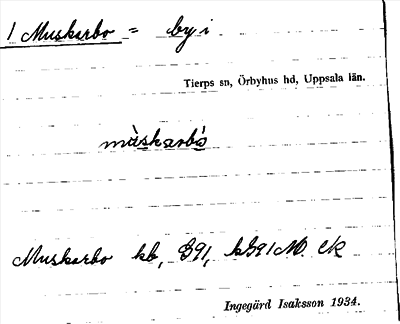 1 Muskarbo = by i
Tierps sn, Örbyhus hd, Uppsala län.
mùskarbò
Muskarbo kb, G91, kG91M. Ek
Ingegärd Isaksson 1934.